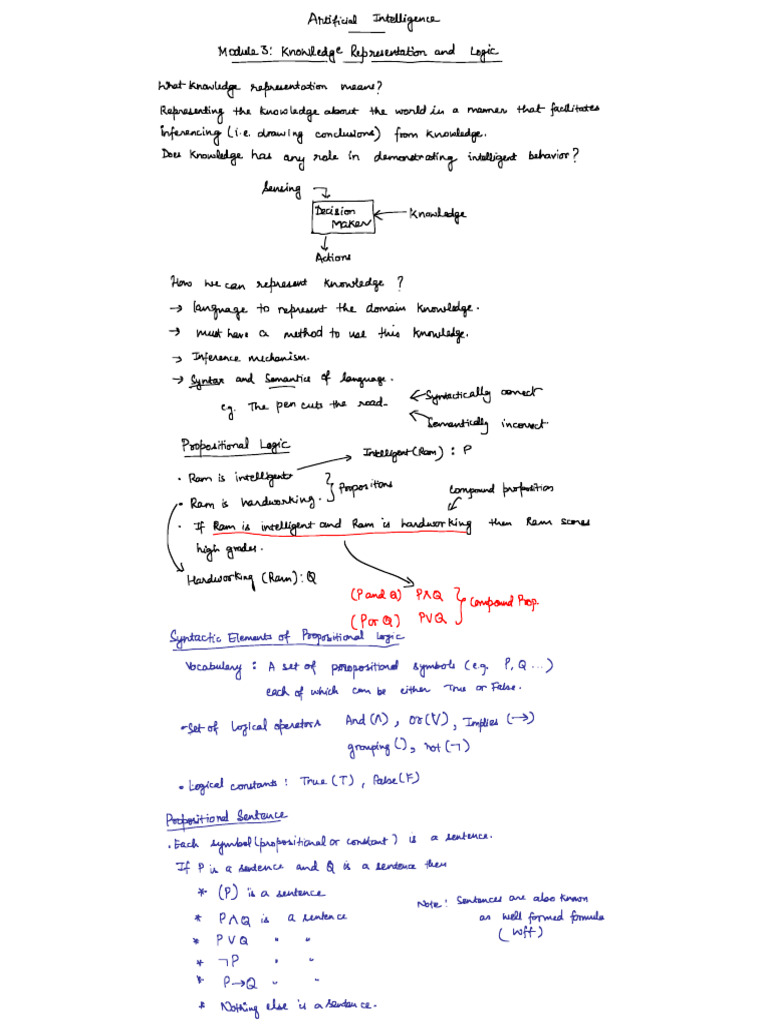 Artificial Intelligence
Module 3: Knowledge Representation and Logic
What knowledge representation means?
Representing the knowledge about the world in a manner that facilitates
inferencing (i.e. drawing conclusions) from knowledge.
Does knowledge has any role in demonstrating intelligent behavior?
Sensing
Decision
Maker
Knowledge
Actions
How we can represent knowledge ?
→ language to represent the domain knowledge.
→ must have a method to use this knowledge.
→ Inference mechanism.
→ Syntax and Semantics of language.
eg. The pen cuts the road.
Syntactically correct
Semantically incorrect
Propositional Logic
Intelligent (Ram) : P
• Ram is intelligent
• Ram is hardworking.
Propositions
Compound proposition
• If Ram is intelligent and Ram is hardworking then Ram scores
high grades.
Hardworking (Ram): Q
(P and Q) P∧Q
(P or Q) P∨Q
Compound Prop.
Syntactic Elements of Propositional Logic
Vocabulary : A set of propositional symbols (e.g. P, Q ...)
each of which can be either True or False.
• Set of logical operators And (∧) , OR (∨) , Implies (→)
grouping () , not (¬)
• Logical constants : True (T) , False (F)
Propositional Sentence
• Each symbol (propositional or constant) is a sentence.
If P is a sentence and Q is a sentence then
* (P) is a sentence
* P∧Q is a sentence
* P∨Q " "
* ¬P " "
* P→Q " "
* Nothing else is a sentence.
Note: Sentences are also known
as well formed formula
(wff)